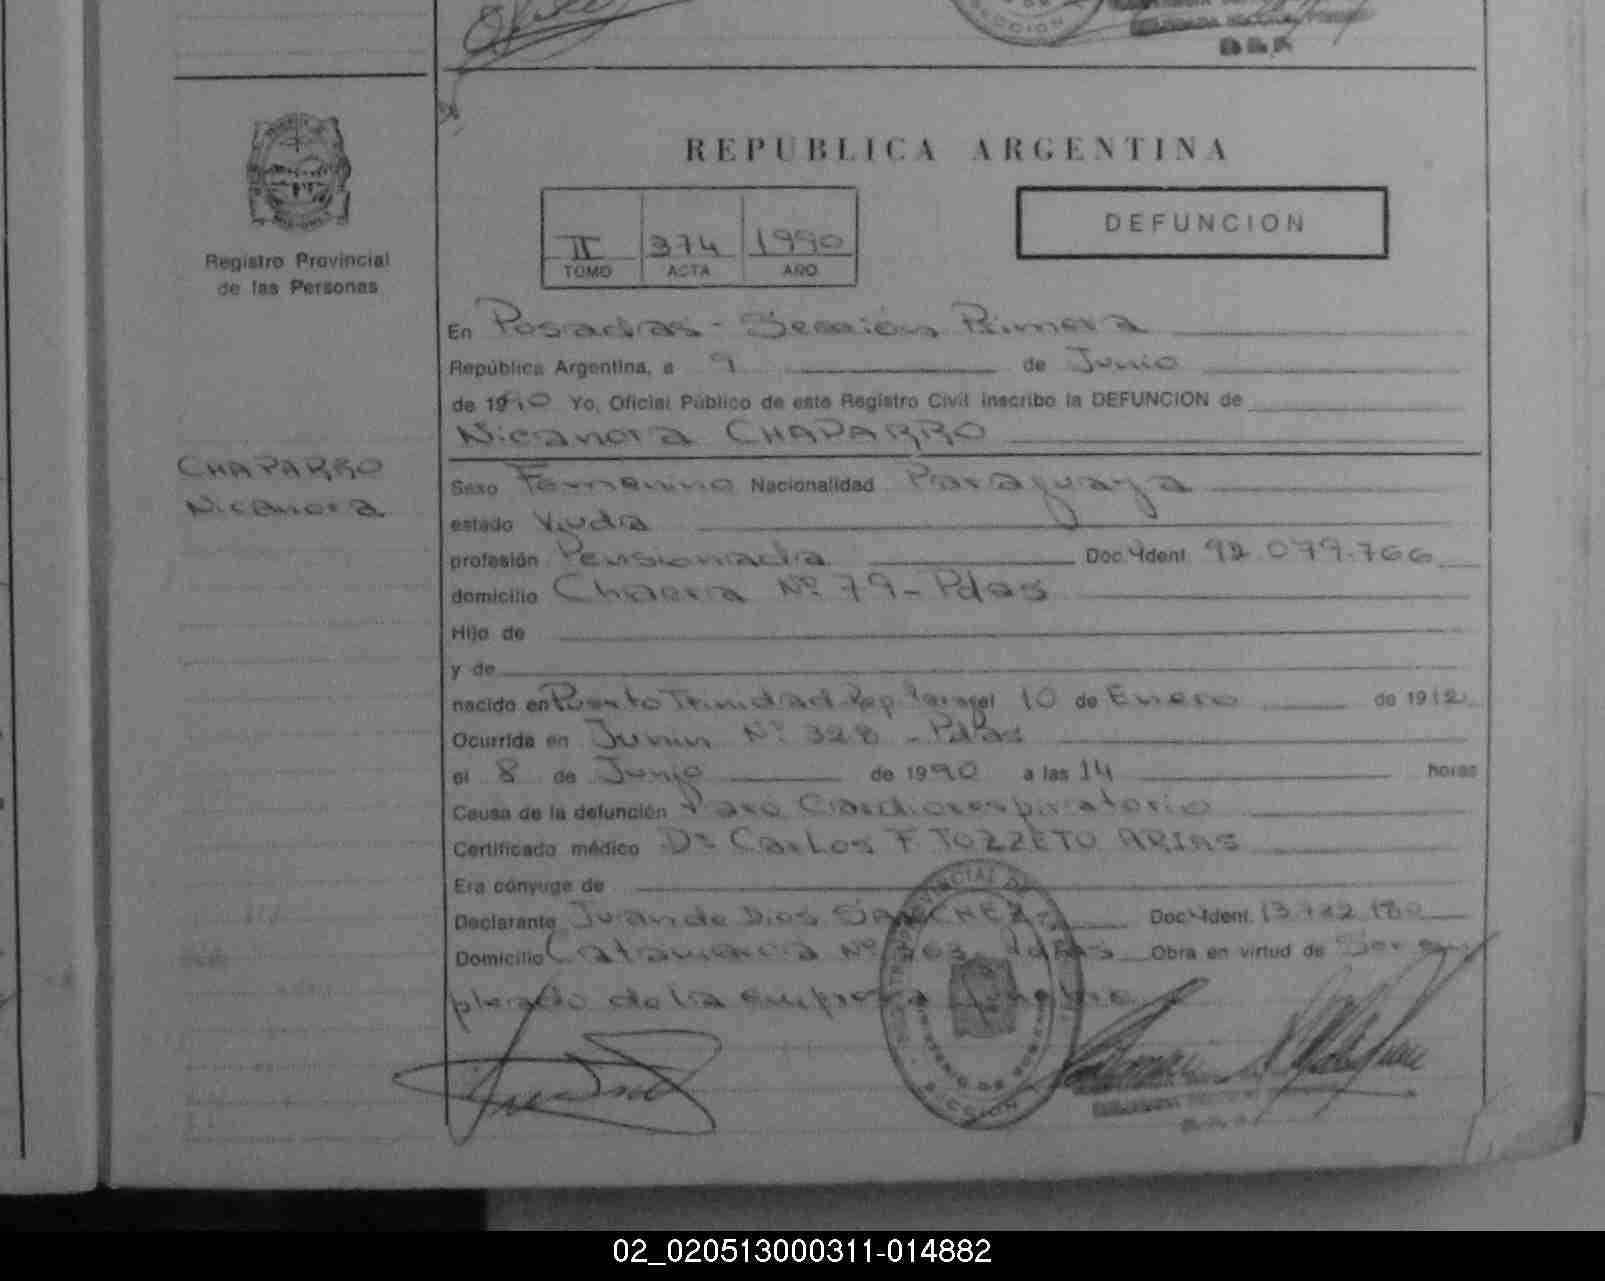 SECCION
REPUBLICA ARGENTINA
II 374 1990
TOMO ACTA AÑO
DEFUNCION
Registro Provincial
de las Personas
En Posadas - Sección Primera
República Argentina, a 9 de Junio
de 1990 Yo, Oficial Público de este Registro Civil inscribo la DEFUNCION de
Nicanora CHAPARRO
CHAPARRO
Nicanora
Sexo Femenino Nacionalidad Paraguaya
estado Viuda
profesión Pensionada Doc. Ident. 92.079.766
domicilio Chacra Nº 79 - Pdas
Hijo de
y de
nacido en Puerto Trinidad Rep. Parag el 10 de Enero de 1912
Ocurrida en Junin Nº 328 - Pdas
el 8 de Junio de 1990 a las 14 horas
Causa de la defunción Paro Cardiorespiratorio
Certificado médico Dr Carlos F TOZZETO ARIAS
Era cónyuge de
Declarante Juan de Dios SANCHEZ Doc. Ident. 13.722.180
Domicilio Catamarca Nº Pdas Obra en virtud de Ser em
pleado de la empresa fúnebre
SECCION
02_020513000311-014882